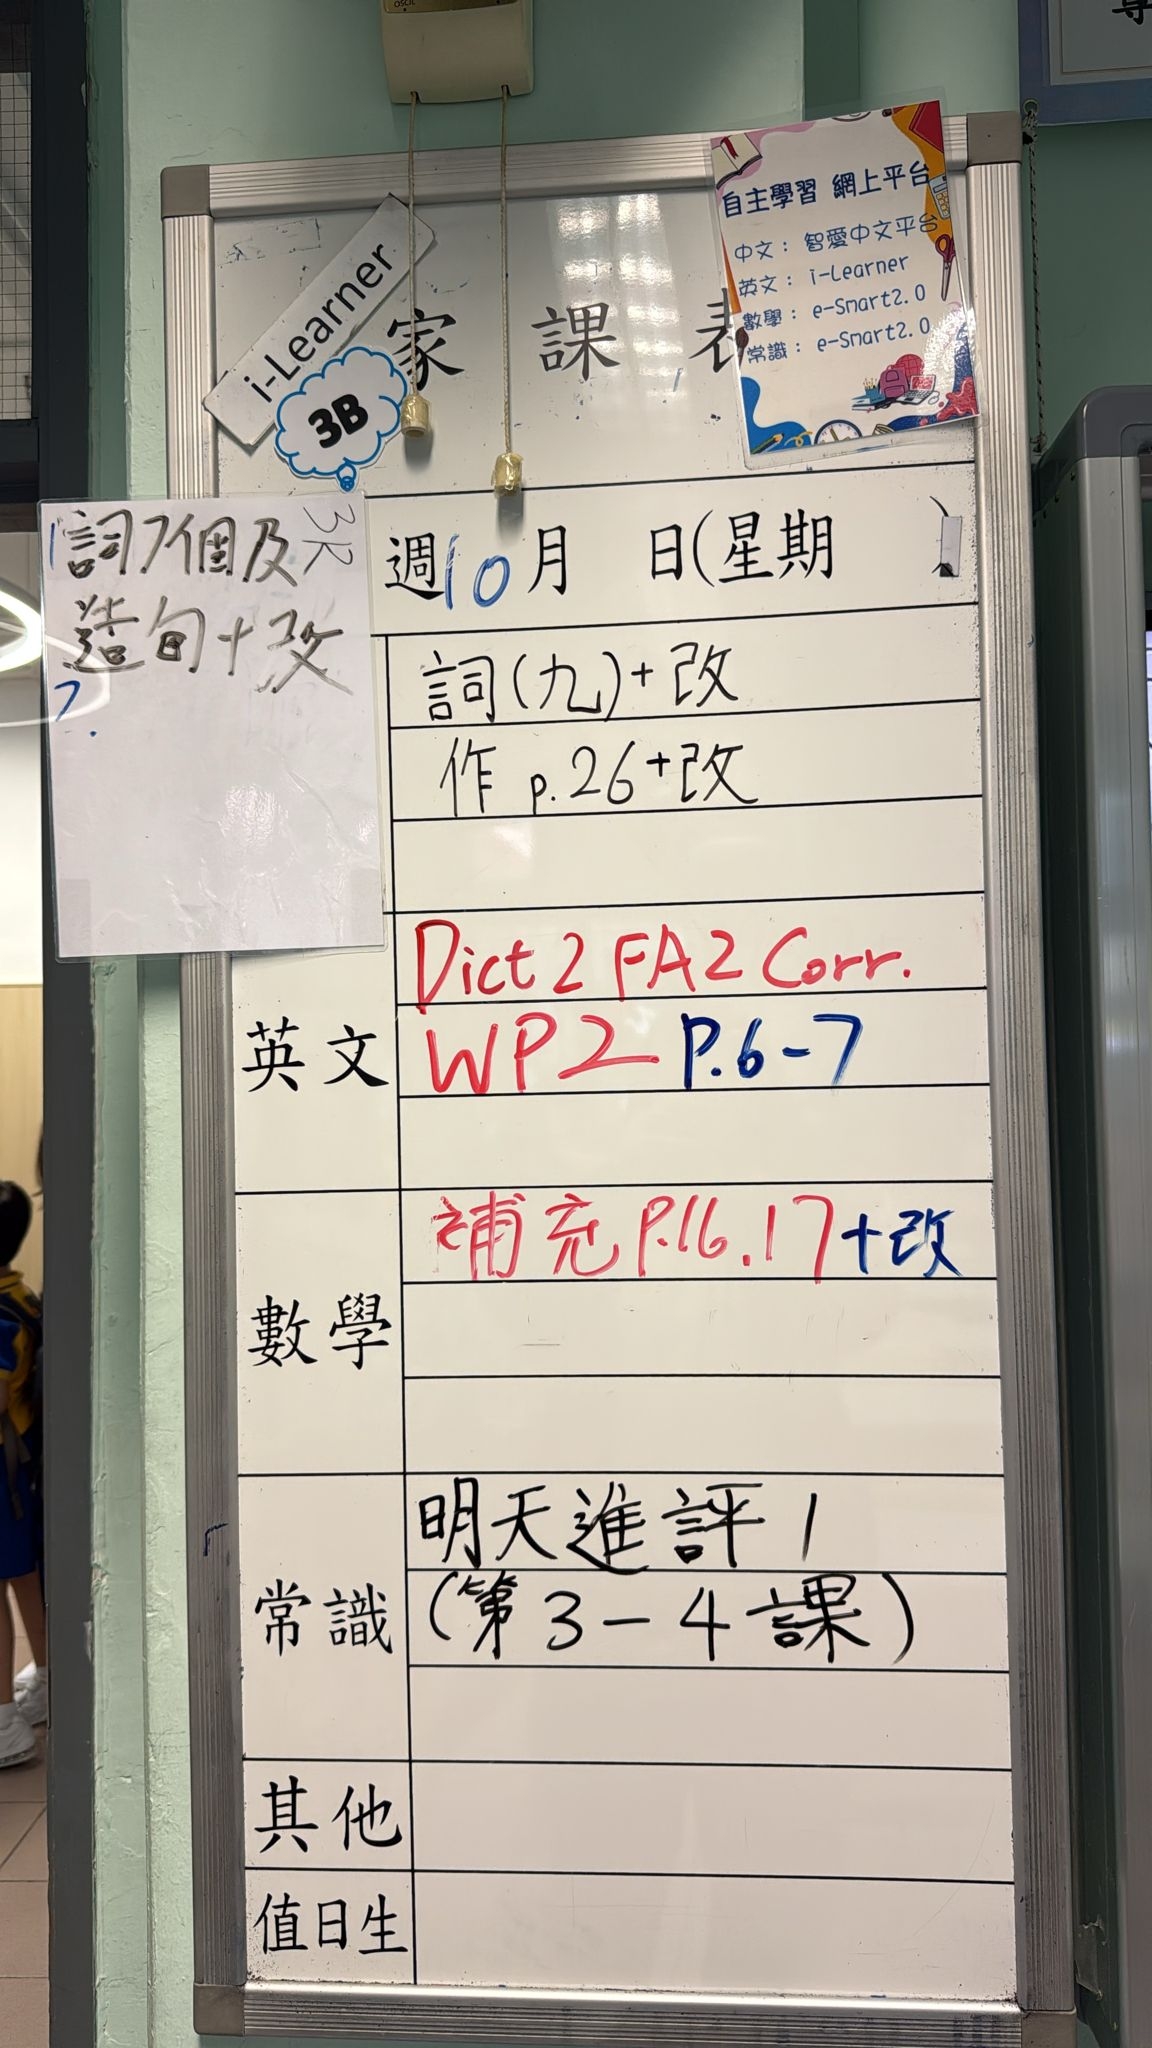 i-Learner
3B
家課表
自主學習 網上平台
中文： 智愛中文平台
英文： i-Learner
數學： e-Smart2.0
常識： e-Smart2.0
週10月 日(星期 )
詞7個及
造句+改
詞(九)+改
作 p.26+改
英文
Dict 2 FA2 Corr.
WP2 P.6-7
數學
補充 P.16.17+改
常識
明天進評1
(第3-4課)
其他
值日生